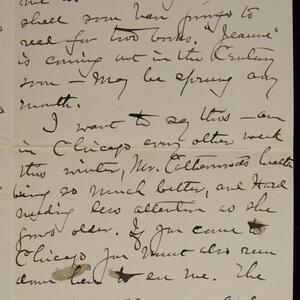 shall soon have proofs to
read for two books. "Jeanne"
is coming out in the Century
soon – May be spring any
month.
I want to say this – am
in Chicago every other week
this winter, Mr. Catherwood's health
being so much better, and Hazel
needing less attention as she
grows older. If you come to
Chicago you must also run
down here to see me. The